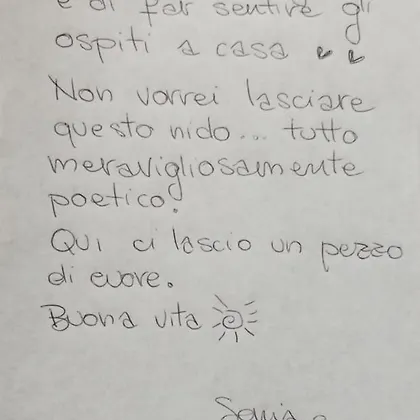 e di far sentire gli
ospiti a casa
Non vorrei lasciare
questo nido... tutto
meravigliosamente
poetico!
Qui ci lascio un pezzo
di cuore.
Buona vita